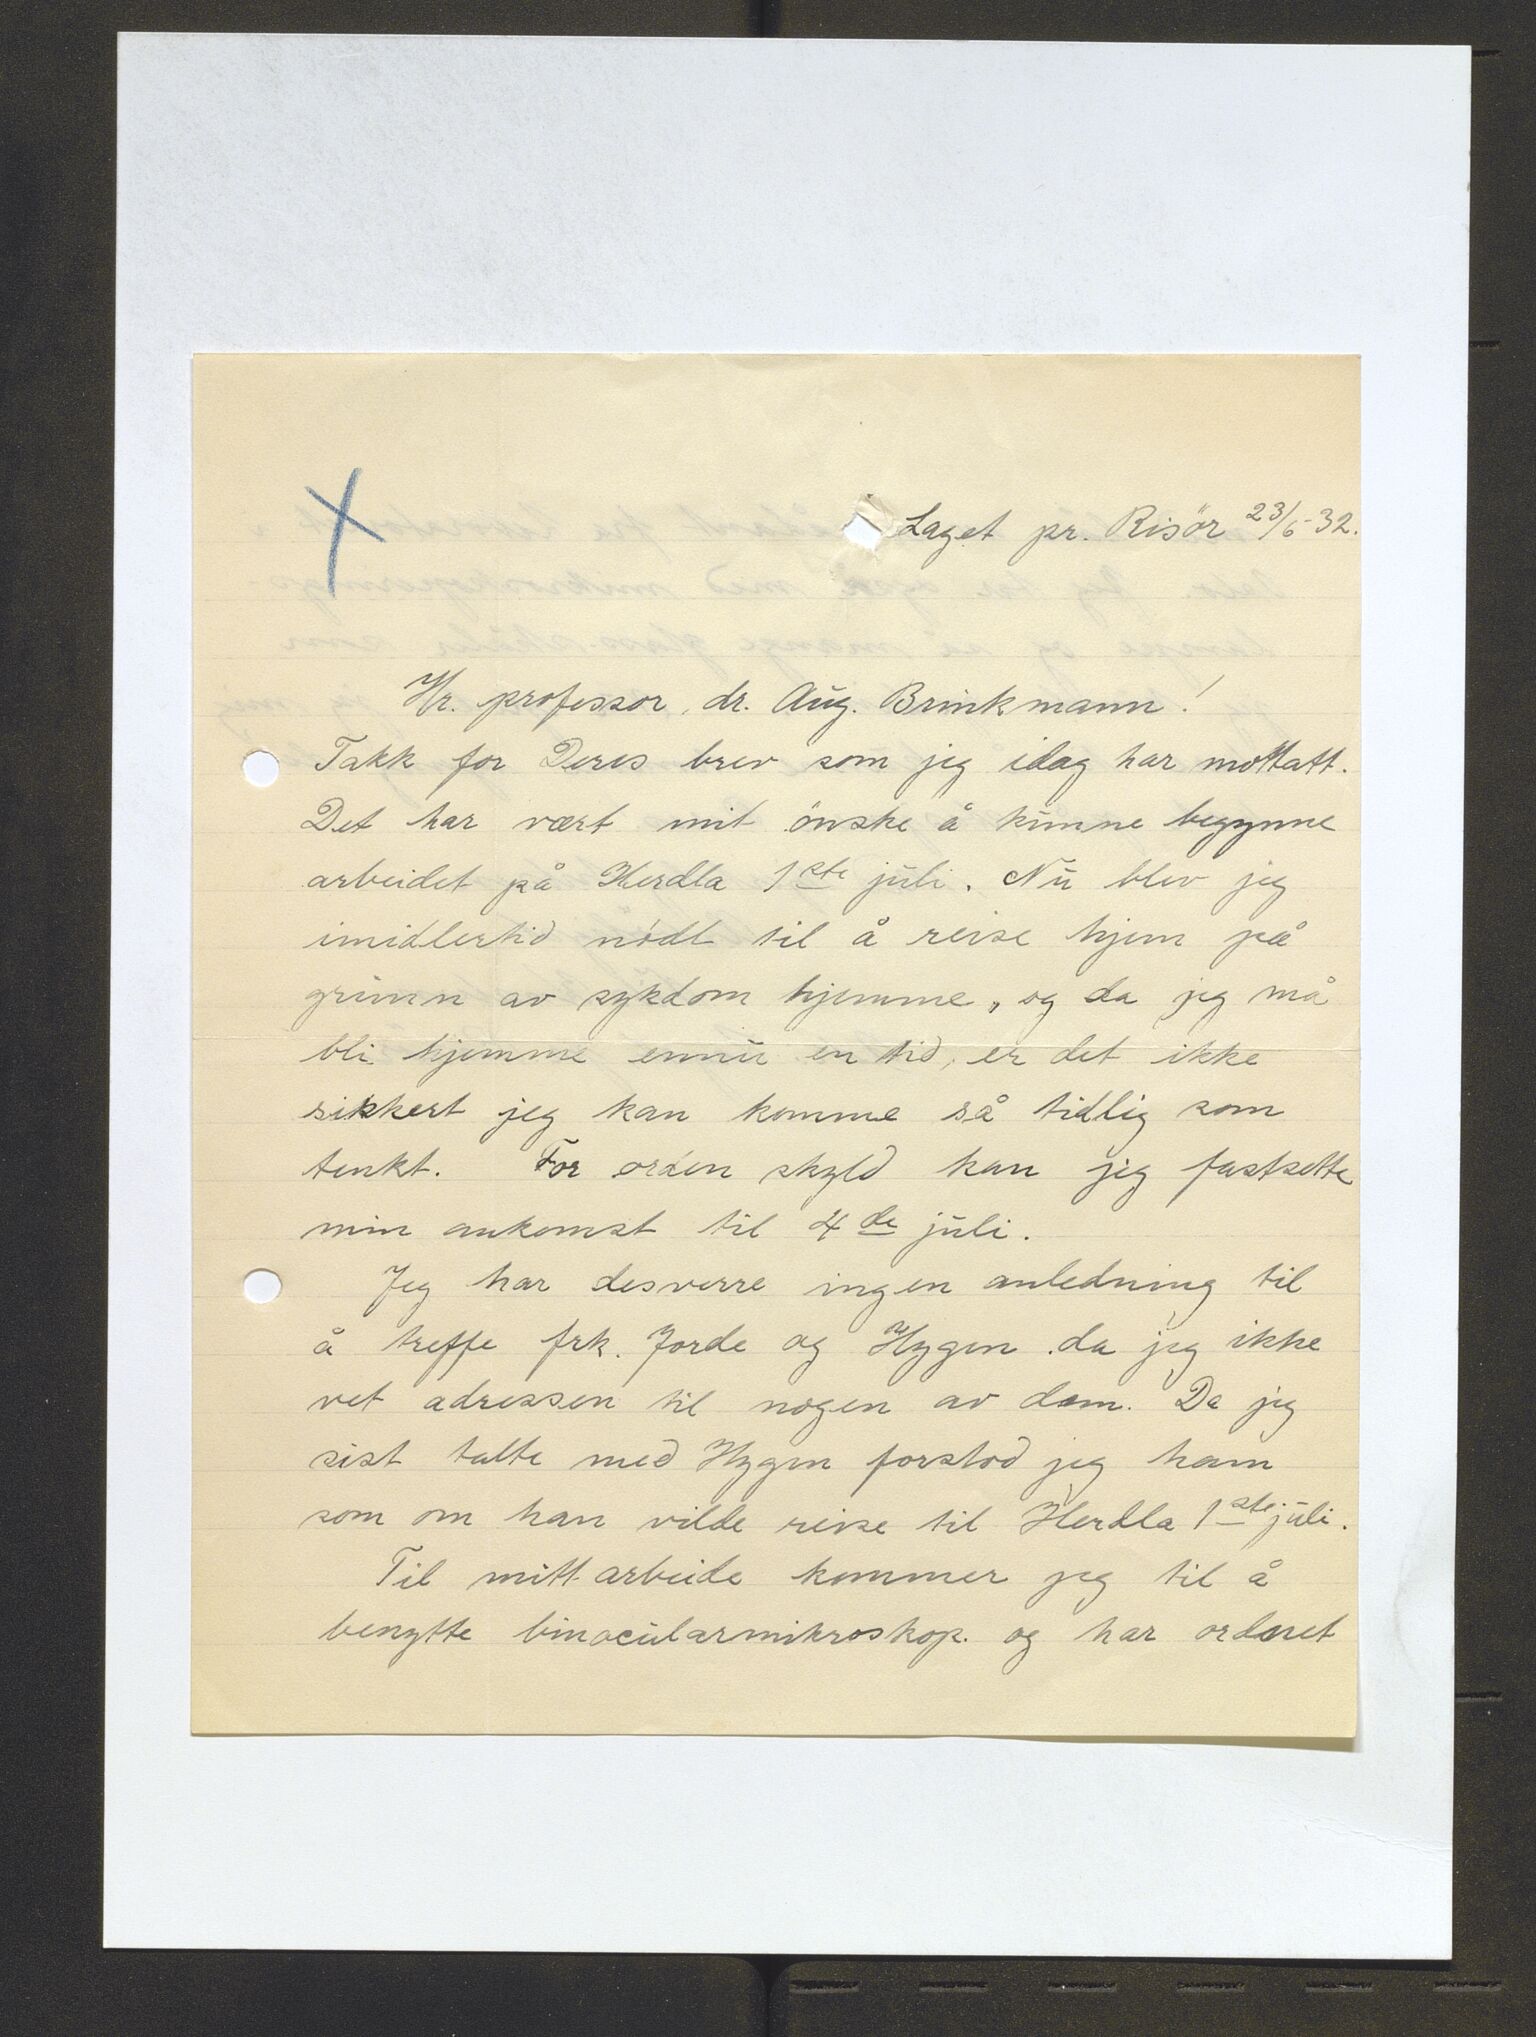 Laget pr. Risör 23/6-32.
Hr. professor, dr. Aug. Brinkmann!
Takk for Deres brev som jeg idag har mottatt.
Det har vært mit önske å kunne begynne
arbeidet på Herdla 1ste juli. Nu blev jeg
imidlertid nödt til å reise hjem på
grunn av sykdom hjemme, og da jeg må
bli hjemme ennu en tid, er det ikke
sikkert jeg kan komme så tidlig som
tenkt. For orden skyld kan jeg fastsette
min ankomst til 4de juli.
Jeg har desverre ingen anledning til
å treffe frk. Jorde og Hygen da jeg ikke
vet adressen til nogen av dem. Da jeg
sist talte med Hygen forstod jeg ham
som om han vilde reise til Herdla 1ste juli.
Til mitt arbeide kommer jeg til å
benytte binocularmikroskop. og har orderet